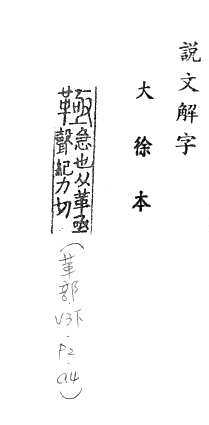 說文解字
大徐本
䩯急也从革亟
聲紀力切
(革部.V3下.P2.a4)